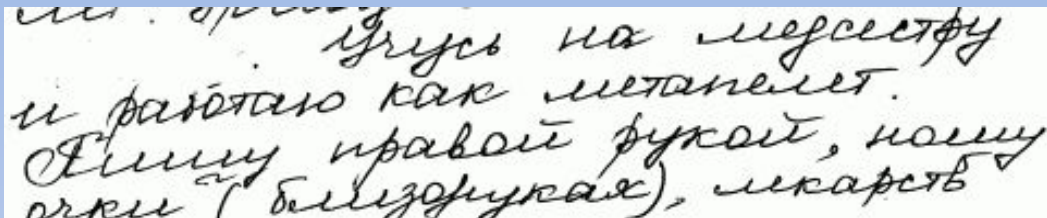 Учусь на медсестру
и работаю как метапелет.
Пишу правой рукой, ношу
очки (близорукая), лекарств